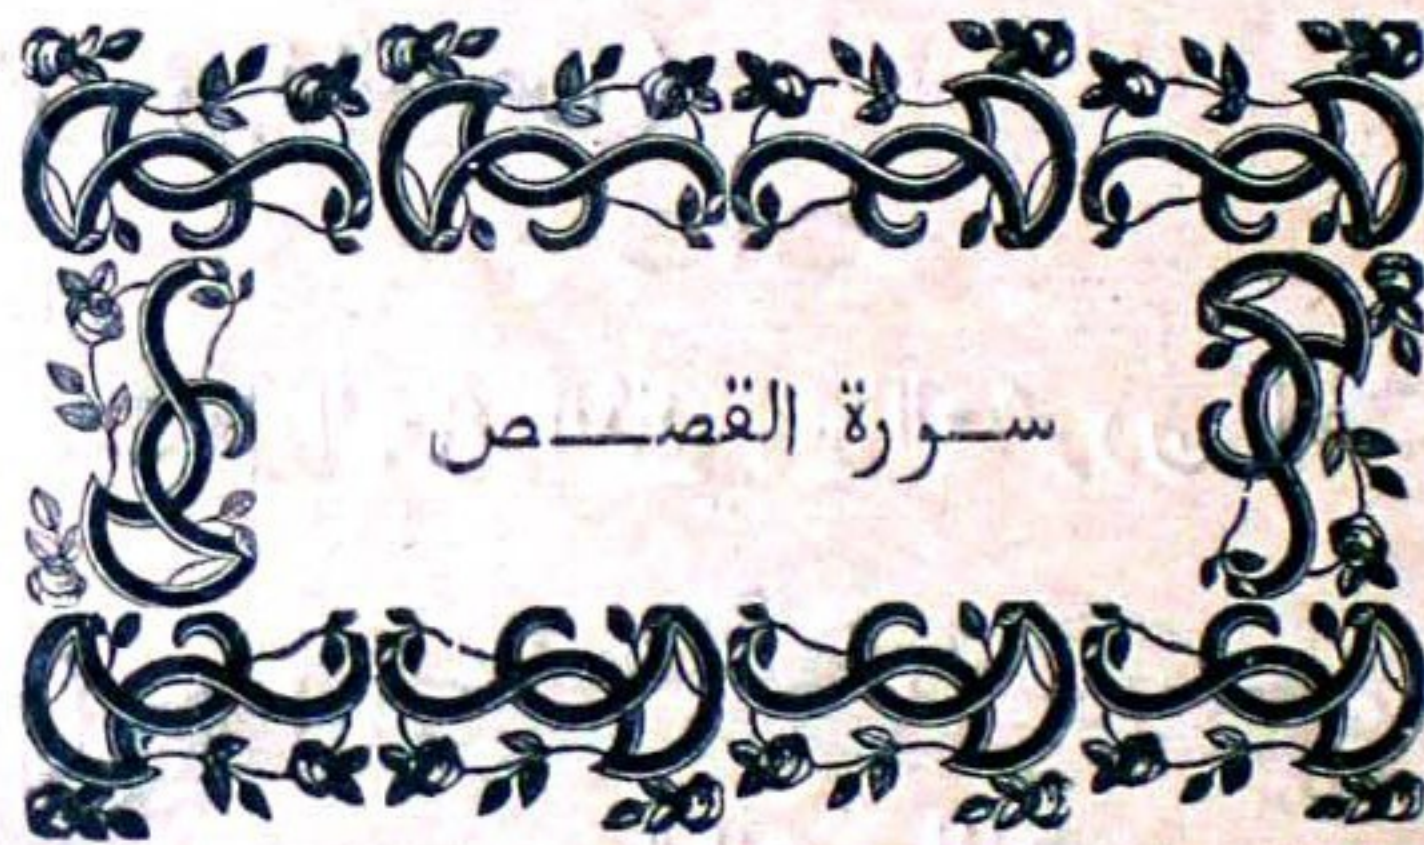 سورة القصص